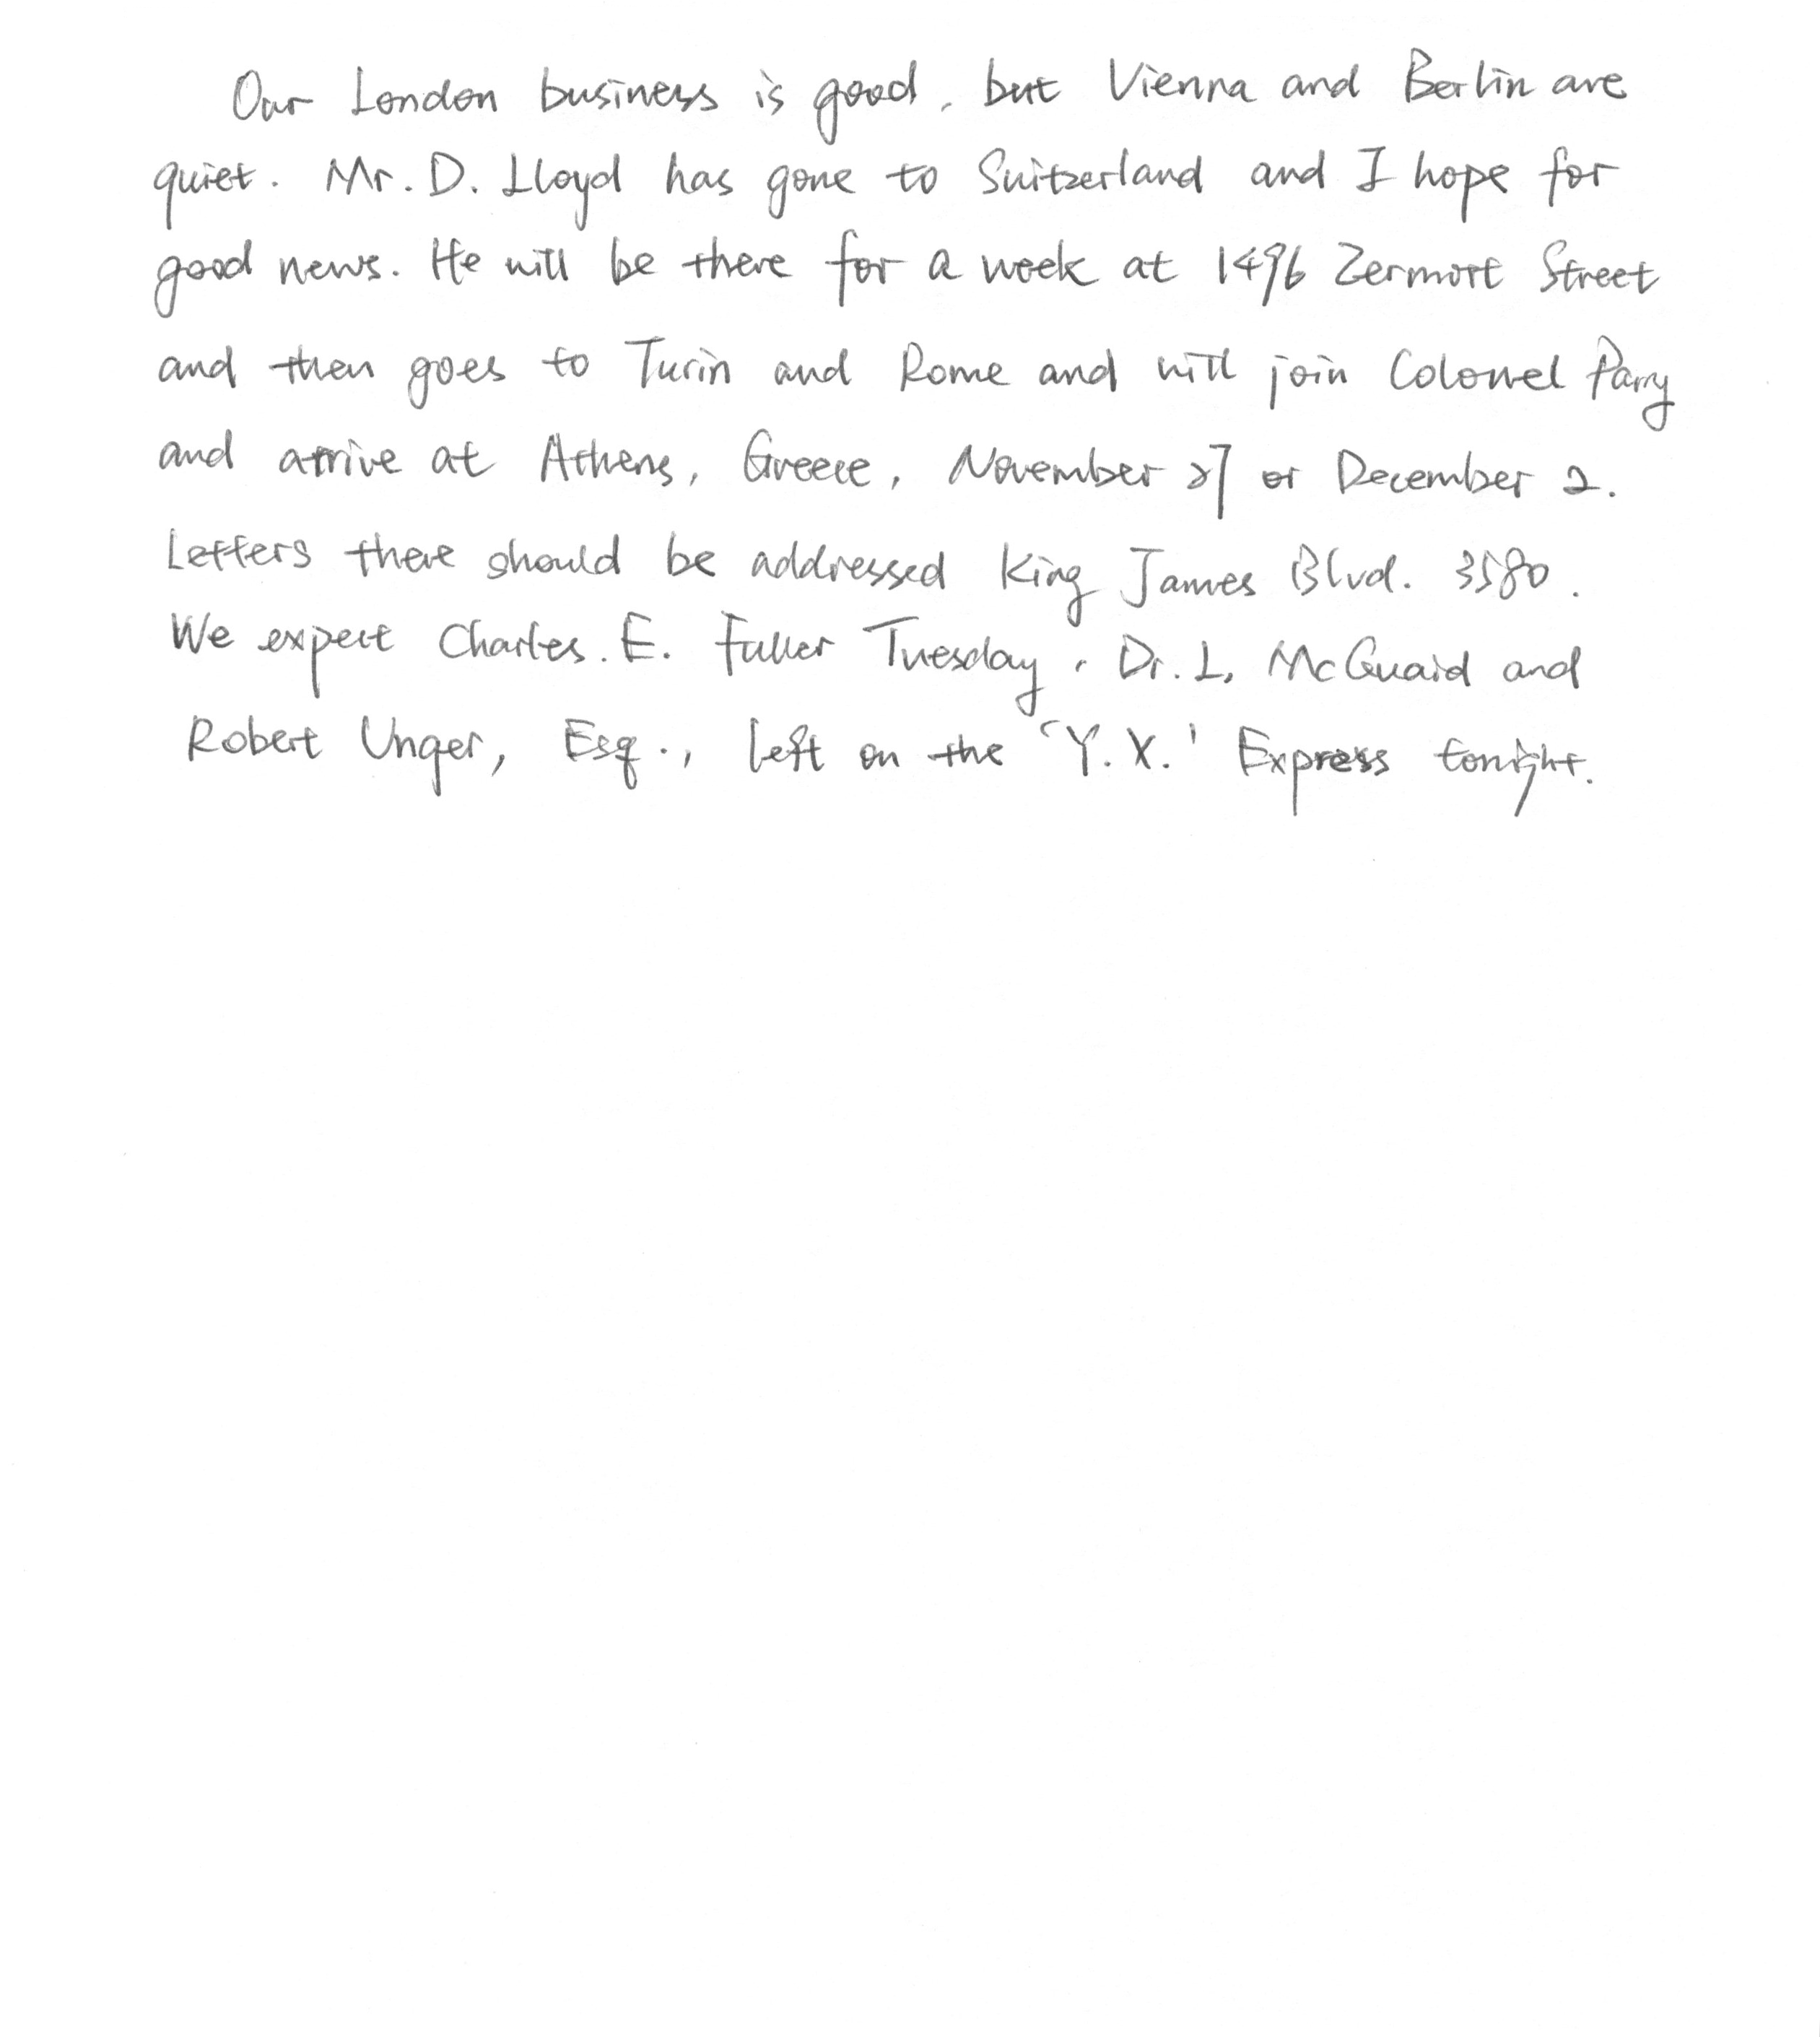 Our London business is good, but Vienna and Berlin are
quiet. Mr. D. Lloyd has gone to Switzerland and I hope for
good news. He will be there for a week at 1496 Zermott Street
and then goes to Turin and Rome and will join Colonel Parry
and arrive at Athens, Greece, November 27 or December 2.
Letters there should be addressed King James Blvd. 3580.
We expect Charles. E. Fuller Tuesday, Dr. L, McQuaid and
Robert Unger, Esq., left on the 'Y.X.' Express tonight.